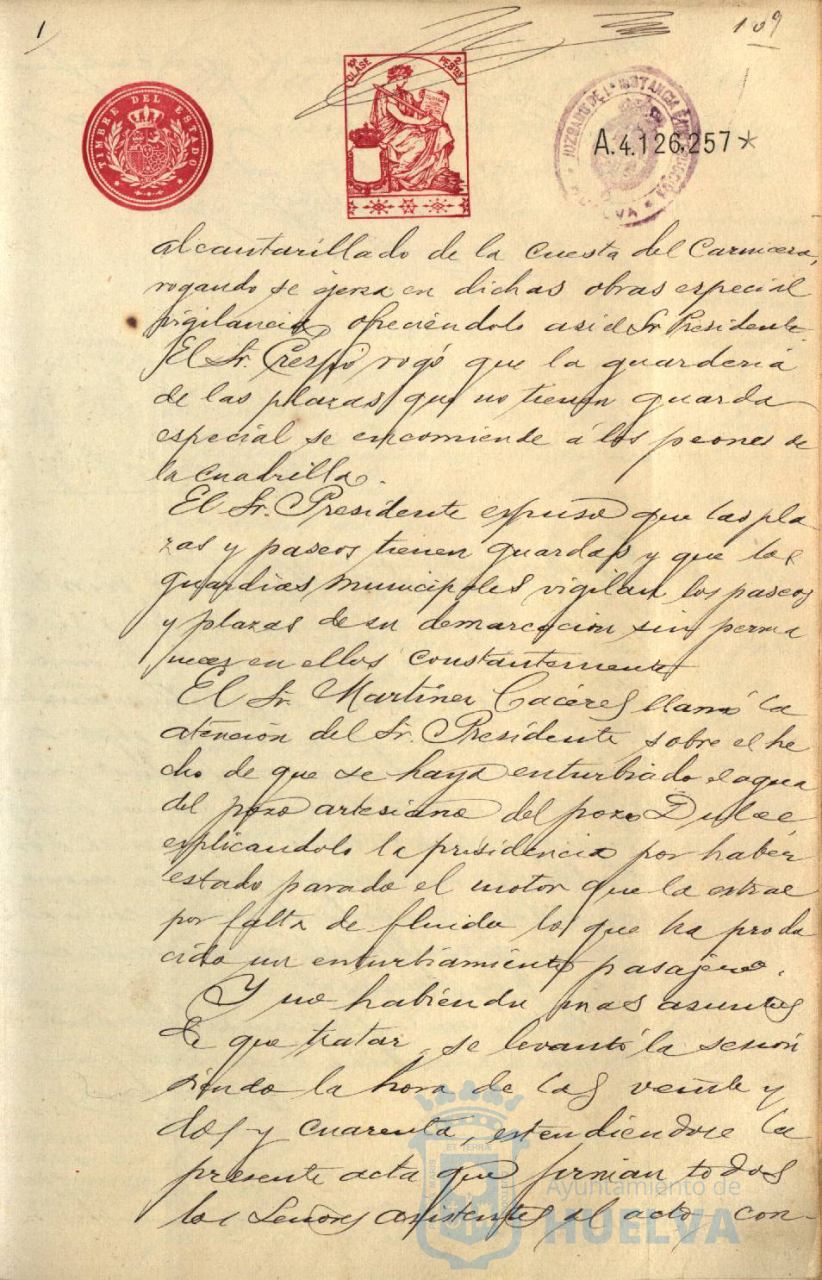 1
109
TIMBRE DEL ESTADO
10ª CLASE
2 PESTAS
JUZGADO DE 1ª INSTANCIA E INSTRUCCION
HUELVA
A.4.126,257*
alcantarillado de la cuesta del Carnicero,
rogando se ejerza en dichas obras especial
vigilancia, ofreciéndolo asi el Sr Presidente.
El Sr. Crespo rogó que la guarderia
de las plazas que no tienen guarda
especial se encomiende á los peones de
la cuadrilla.
El Sr. Presidente espuso que las pla
zas y paseos tienen guardas y que los
guardias municipales vigilan los paseos
y plazas de su demarcacion sin perma
necer en ellos constantemente
El Sr. Martinez Caceres llamó la
atención del Sr. Presidente sobre el he
cho de que se haya enturbiado el agua
del pozo artesiano del pozo Dulce
esplicandolo la presidencia por haber
estado parado el motor que la estrae
por falta de fluido lo que ha produ
cido un enturbiamiento pasajero.
Y no habiendo mas asuntos
de que tratar, se levantó la sesión
siendo la hora de las veinte y
dos y cuarenta, estendiendose la
presente acta que firman todos
los Señores asistentes al acto, con-
Ayuntamiento de
HUELVA